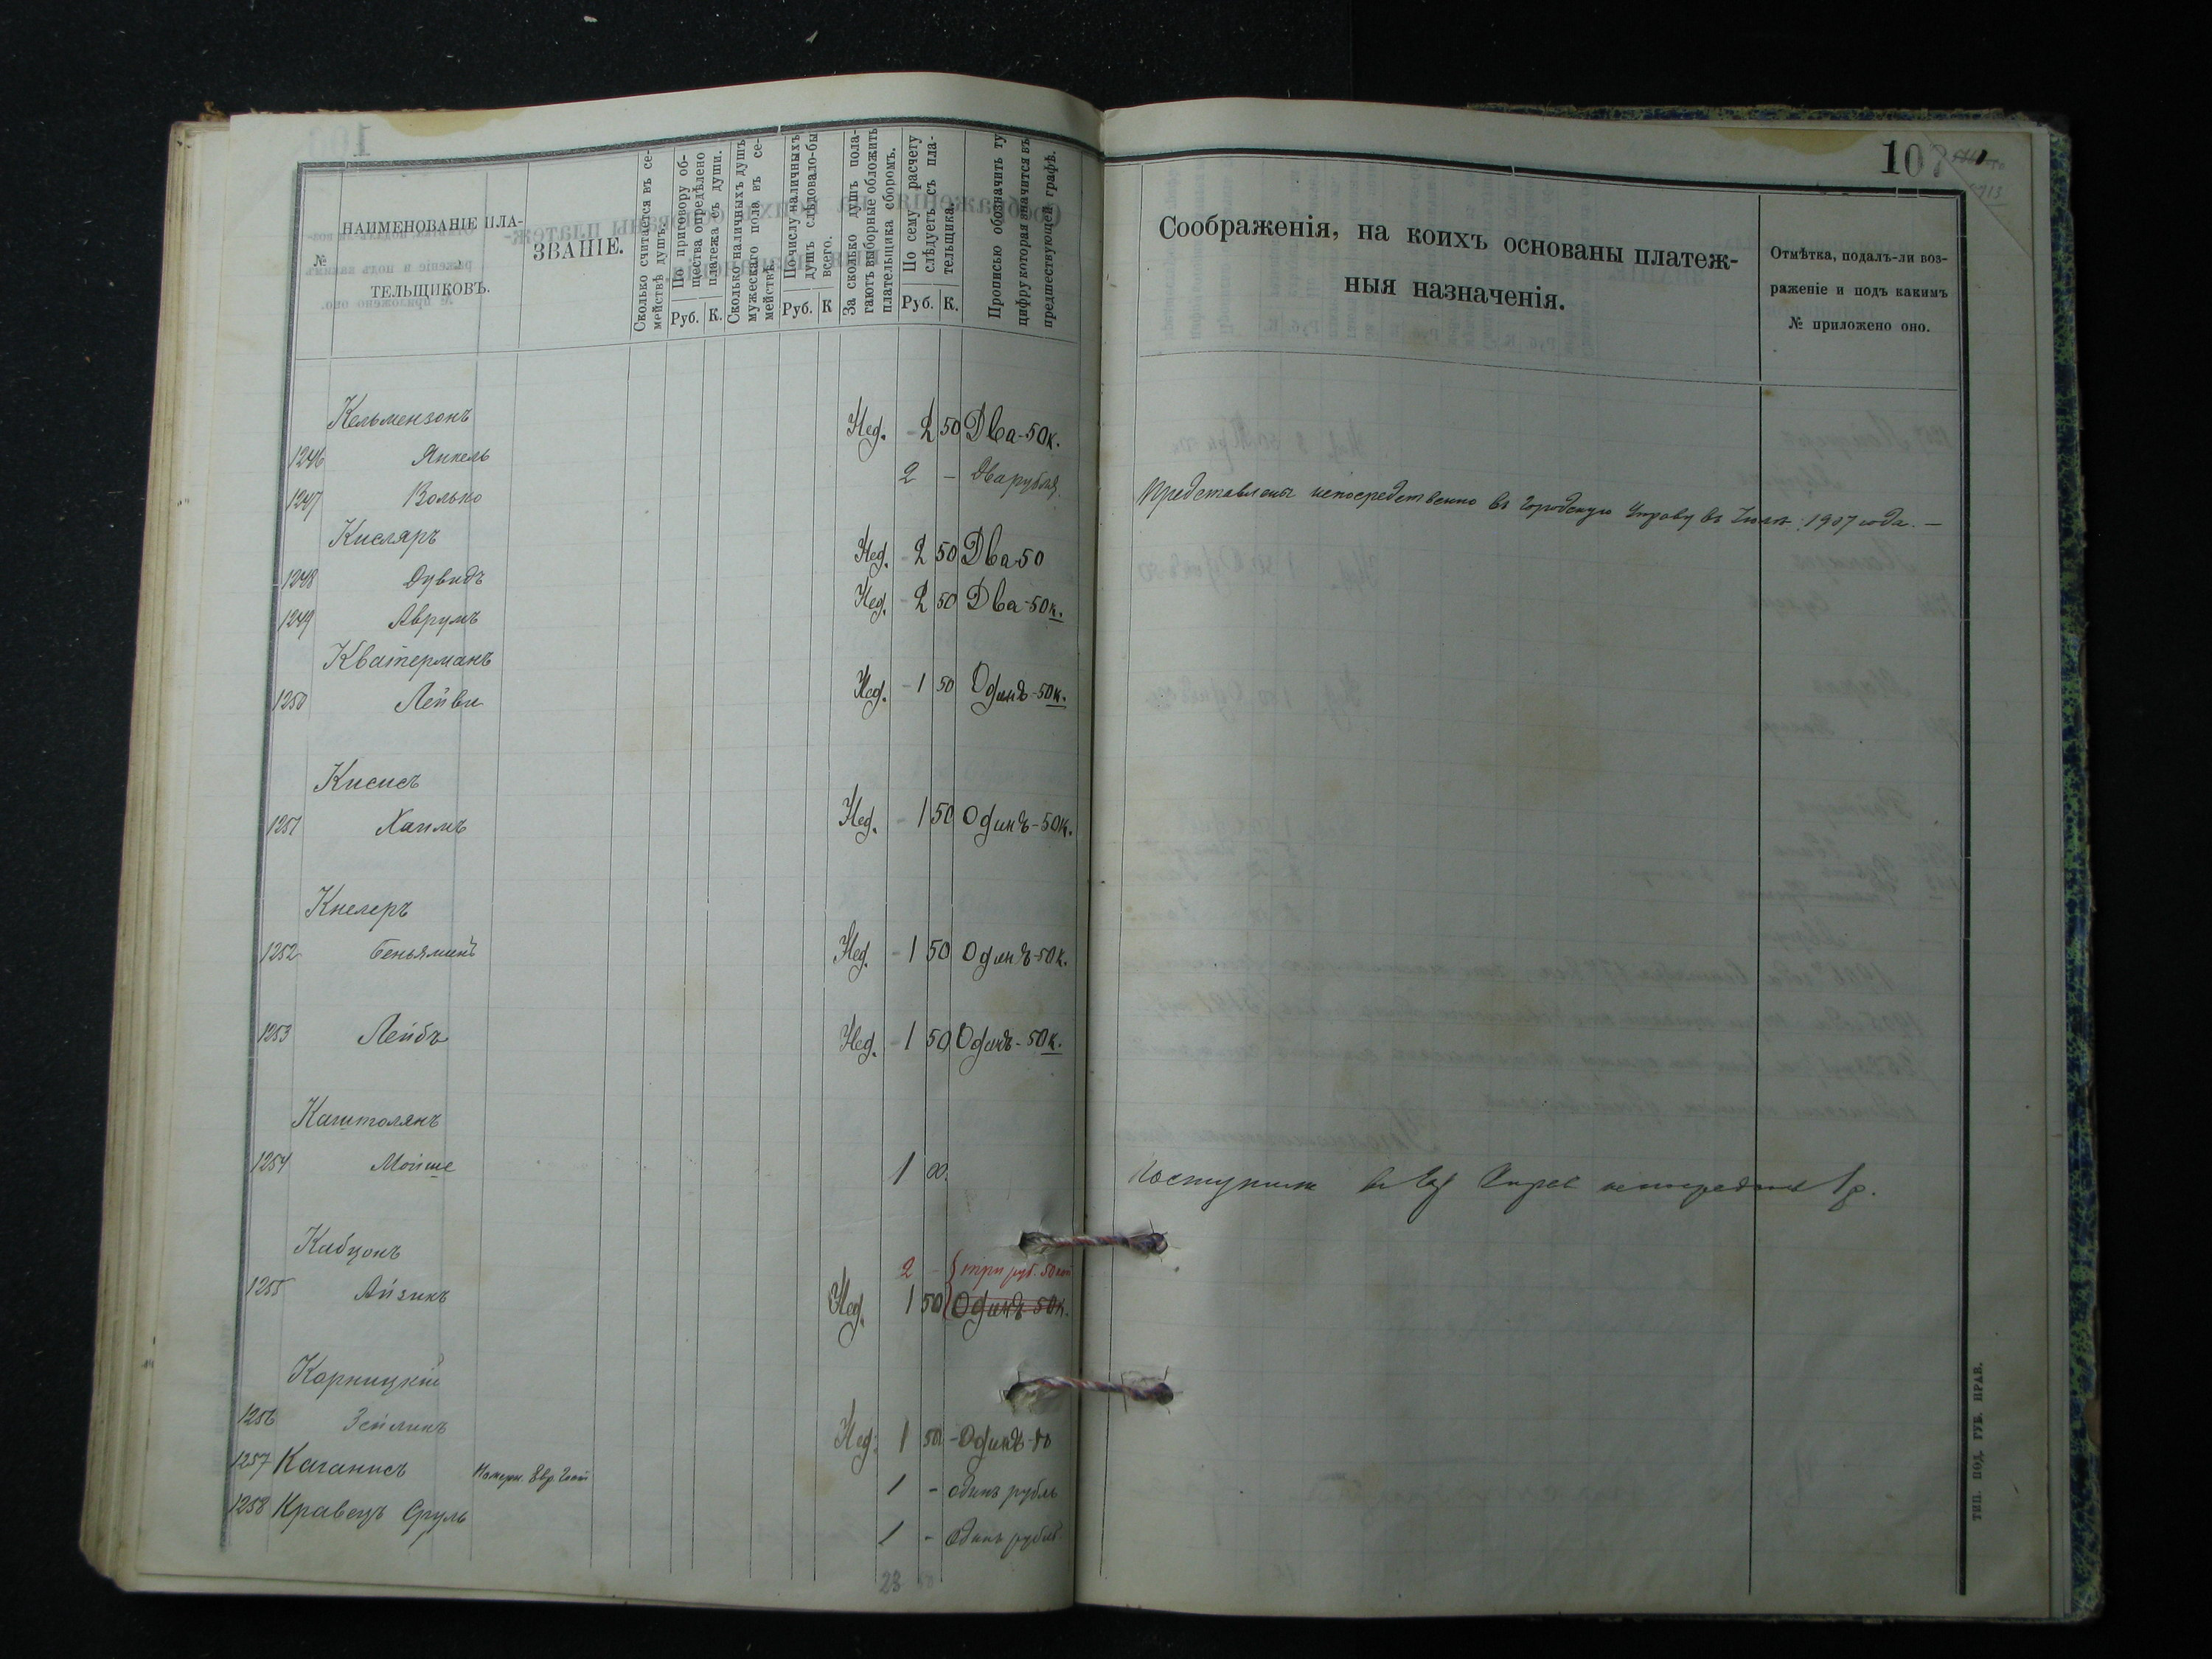 107
713
№
НАИМЕНОВАНІЕ ПЛА-
ТЕЛЬЩИКОВЪ.
ЗВАНІЕ.
Сколько считается въ се-
мействѣ душъ.
По приговору об-
щества опредѣлено
платежа съ души.
Руб. К.
Сколько наличныхъ душъ
мужескаго пола въ се-
мействѣ.
По числу наличныхъ
душъ слѣдовало-бы
всего.
Руб. К
За сколько душъ пола-
гаютъ выборные обложить
плательщика сборомъ.
По сему расчету
слѣдуетъ съ пла-
тельщика.
Руб. К.
Прописью обозначить ту
цифру которая значится въ
предшествующей графѣ.
Соображенія, на коихъ основаны платеж-
ныя назначенія.
Отмѣтка, подалъ-ли воз-
раженіе и подъ какимъ
№ приложено оно.
Кельмензонъ
1246 Янкель Нед. - 2 50 Два - 50 к.
1247 Волько 2 - Два рубля Представлены непосредственно въ Городскую Управу въ 1907 года. —
Кисляръ
1248 Дувидъ Нед. - 2 50 Два 50
1249 Аврумъ Нед. - 2 50 Два - 50 к.
Кватерманъ
1250 Лейви Нед. - 1 50 Одинъ - 50 к.
Кисисъ
1251 Хаимъ Нед. - 1 50 Одинъ - 50 к.
Кнелеръ
1252 Беньяминъ Нед. - 1 50 Одинъ - 50 к.
1253 Лейбъ Нед. - 1 50 Одинъ - 50 к.
Каштолянъ
1254 Мойше 1 00. Поступило
Кабцонъ
2 - три руб. 50 коп
1255 Айзикъ Нед. 1 50 Одинъ 50 к.
Корницкій
1256 Зейликъ Нед. 1 50 - Одинъ - 50
1257 Каганисъ 1 - одинъ рубль
1258 Кравецъ Сруль 1 - Одинъ рубль
23 50
ТИП. ПОД. ГУБ. ПРАВ.